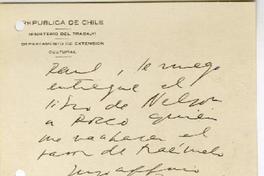 REPUBLICA DE CHILE
MINISTERIO DEL TRABAJO
DEPARTAMENTO DE EXTENSION
CULTURAL
Raul, le ruego
entregue el
libro de Nelson
a quien
me va hacer el
favor de traérmelo